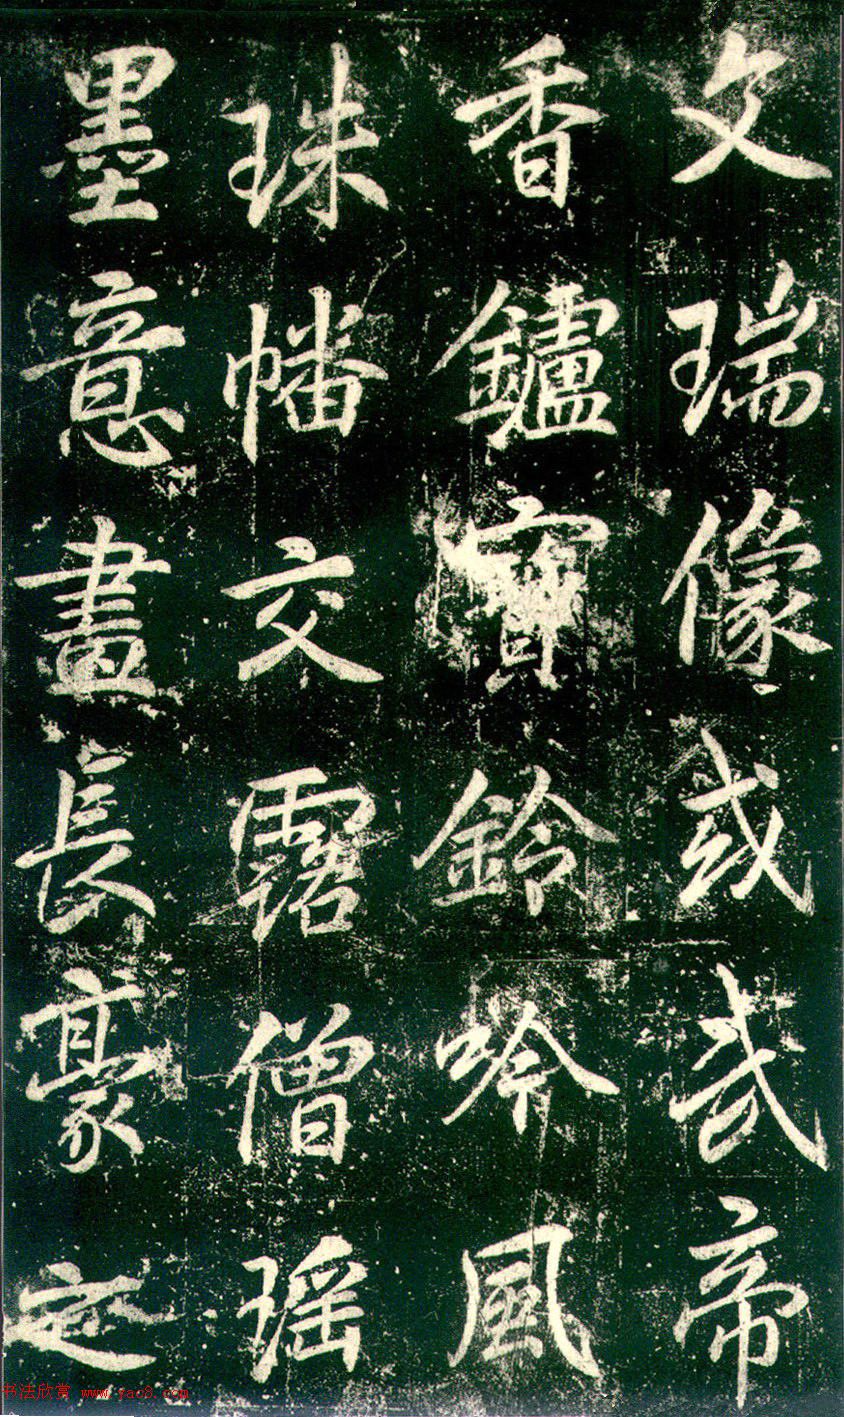 文瑞像或武帝
香鑪寶鈴吟風
珠幡交露僧瑤
墨意畫長豪
书法欣赏 www.yac8.com